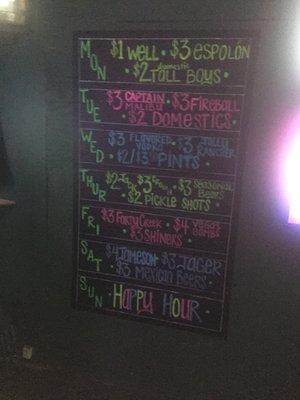 MON $1 WELL • $3 ESPOLÓN
$2 domestic TALL BOYS •
TUE $3 CAPTAIN MALIBU • $3 FIREBALL
• $2 DOMESTICS
WED $3 FLAVORED VODKA • $3 JOLLY RANCHER
• $2/$3 PINTS •
THUR $3 SEASONAL BEERS
$2 PICKLE SHOTS •
FRI $3 FORTY CREEK • $4 VEGAS BOMBS
• $3 SHINERS •
SAT $4 JAMESON • $3 JAGER
• $3 MEXICAN BEERS •
SUN • HAPPY HOUR •